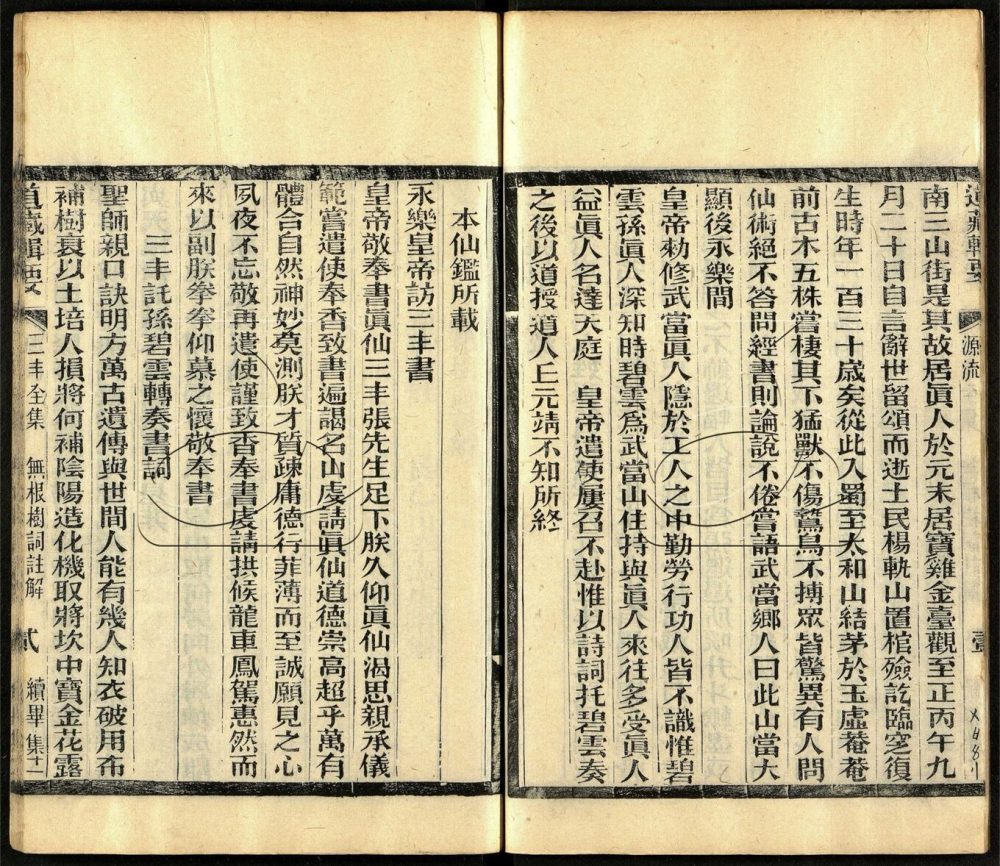 道藏輯要 源流 壹
南三山街是其故居眞人於元末居寶雞金臺觀至正丙午九
月二十日自言辭世留頌而逝土民楊軌山置棺殮訖臨窆復
生時年一百三十歲矣從此入蜀至太和山結茅於玉虛菴菴
前古木五株嘗棲其下猛獸不傷鷙鳥不搏眾皆驚異有人問
仙術絕不答問經書則論說不倦嘗語武當鄉人曰此山當大
顯後永樂間
皇帝勅修武當眞人隱於工人之中勤勞行功人皆不識惟碧
雲孫眞人深知時碧雲爲武當山住持與眞人來往多受眞人
益眞人名達天庭 皇帝遣使屢召不赴惟以詩詞托碧雲奏
之後以道授道人丘元靖不知所終
本仙鑑所載
永樂皇帝訪三丰書
皇帝敬奉書眞仙三丰張先生足下朕久仰眞仙渴思親承儀
範嘗遣使奉香致書遍謁名山虔請眞仙道德崇高超乎萬有
體合自然神妙莫測朕才質疎庸德行菲薄而至誠願見之心
夙夜不忘敬再遣使謹致香奉書虔請拱候龍車鳳駕惠然而
來以副朕拳拳仰慕之懷敬奉書
三丰託孫碧雲轉奏書詞
聖師親口訣明方萬古遺傳與世間人能有幾人知衣破用布
補樹衰以土培人損將何補陰陽造化機取將坎中寶金花露
道藏輯要 三丰全集 無根樹詞註解 貳 續畢集十一